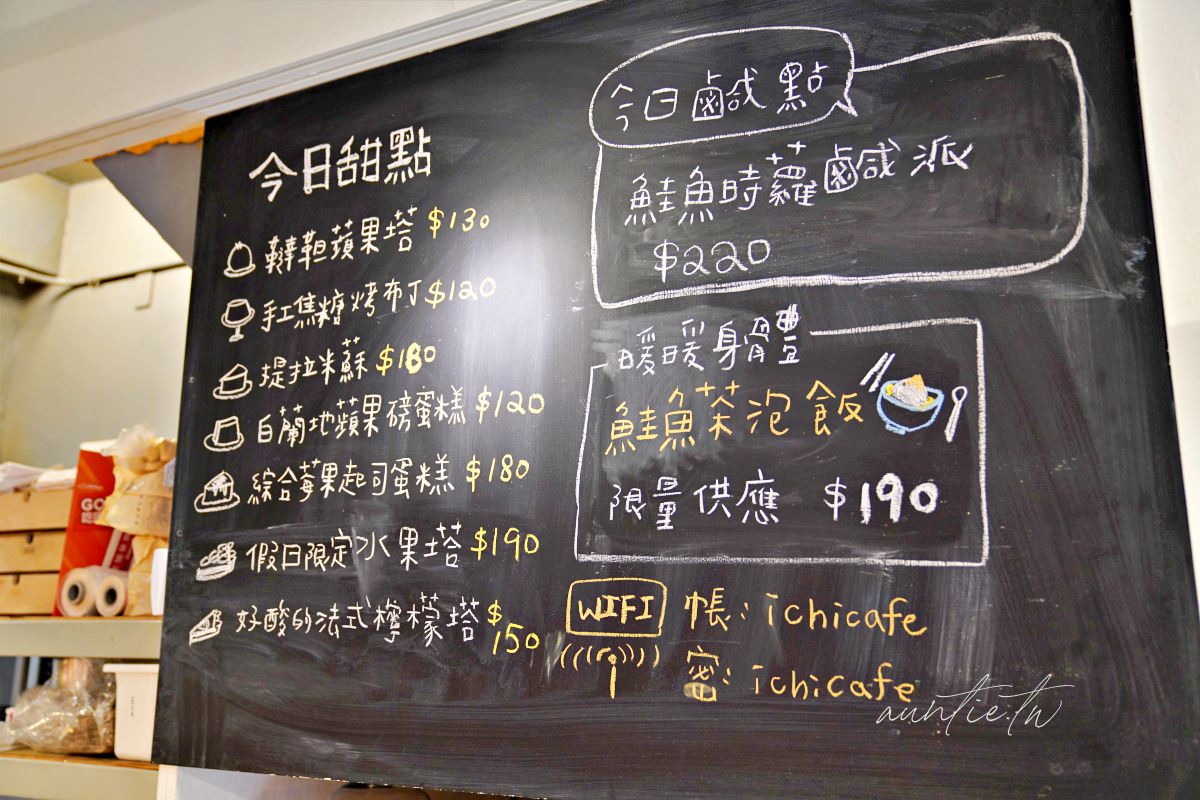 今日甜點
韃靼蘋果塔 $130
手工焦糖烤布丁 $120
提拉米蘇 $180
白蘭地蘋果磅蛋糕 $120
綜合莓果起司蛋糕 $180
假日限定水果塔 $190
好酸的法式檸檬塔 $150
今日鹹點
鮭魚時蘿鹹派
$220
暖暖身體
鮭魚茶泡飯
限量供應 $190
WIFI 帳：ichicafe
密：ichicafe
auntie.tw
GO